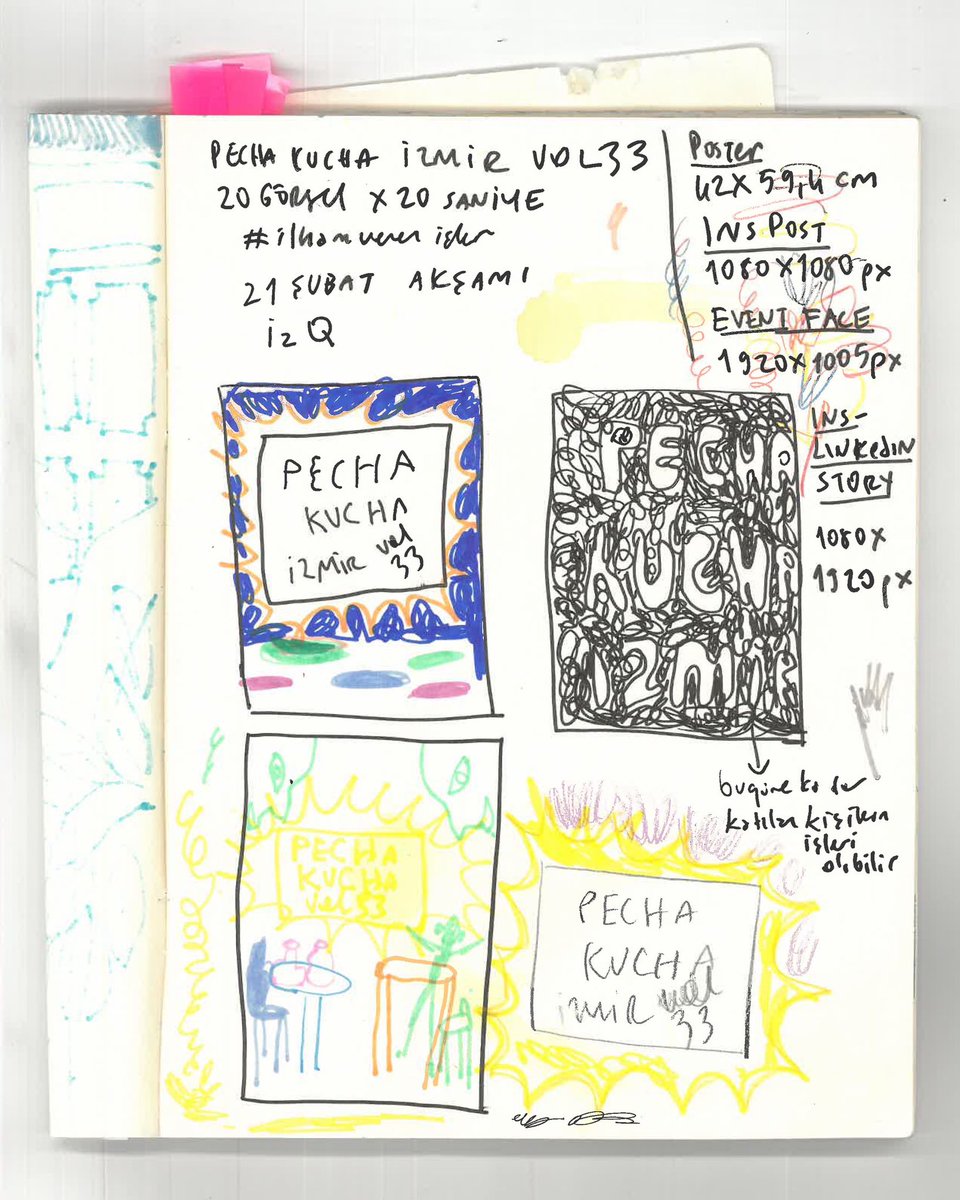 PECHA KUCHA İZMİR VOL33
20 GÖRSEL X 20 SANİYE
#ilham veren işler
21 ŞUBAT AKŞAMI
İZQ
POSTER
42X59,4 cm
INS POST
1080X1080 px
EVENT FACE
1920X1005px
INS-
LINKEDIN
STORY
1080X
1920 px
PECHA
KUCHA
İZMİR vol
33
PECH
KUCH
İZMİR
bugüne kadar
katılan kişilerin
işleri
olabilir
PECHA
KUCHA
vol 33
PECHA
KUCHA
İZMİR vol
33